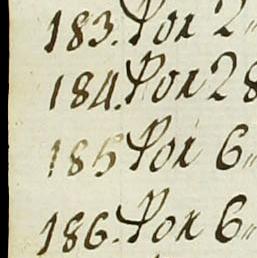 183. Por 2 "
184. Por 28
185 Por 6 "
186. Por 6 "